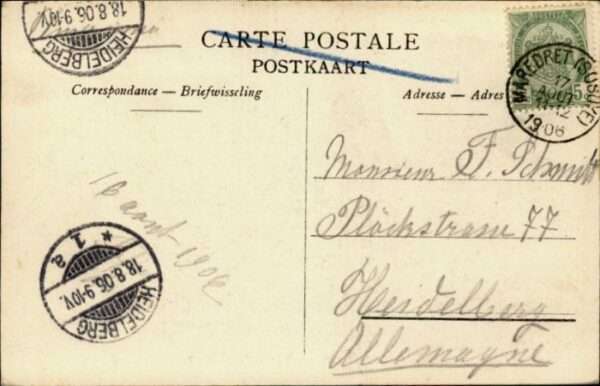 18.8.06.9-10V.
HEIDELBERG
CARTE POSTALE
POSTKAART
Correspondance — Briefwisseling
Adresse — Adres
MAREDRET (SOSOYE)
17
AOUT
11-12
1906
5
16 aout 1906
Monsieur F. Schmitt
Plöckstrasse 77
Heidelberg
Allemagne
* 1 a
18.8.06.9-10V.
HEIDELBERG